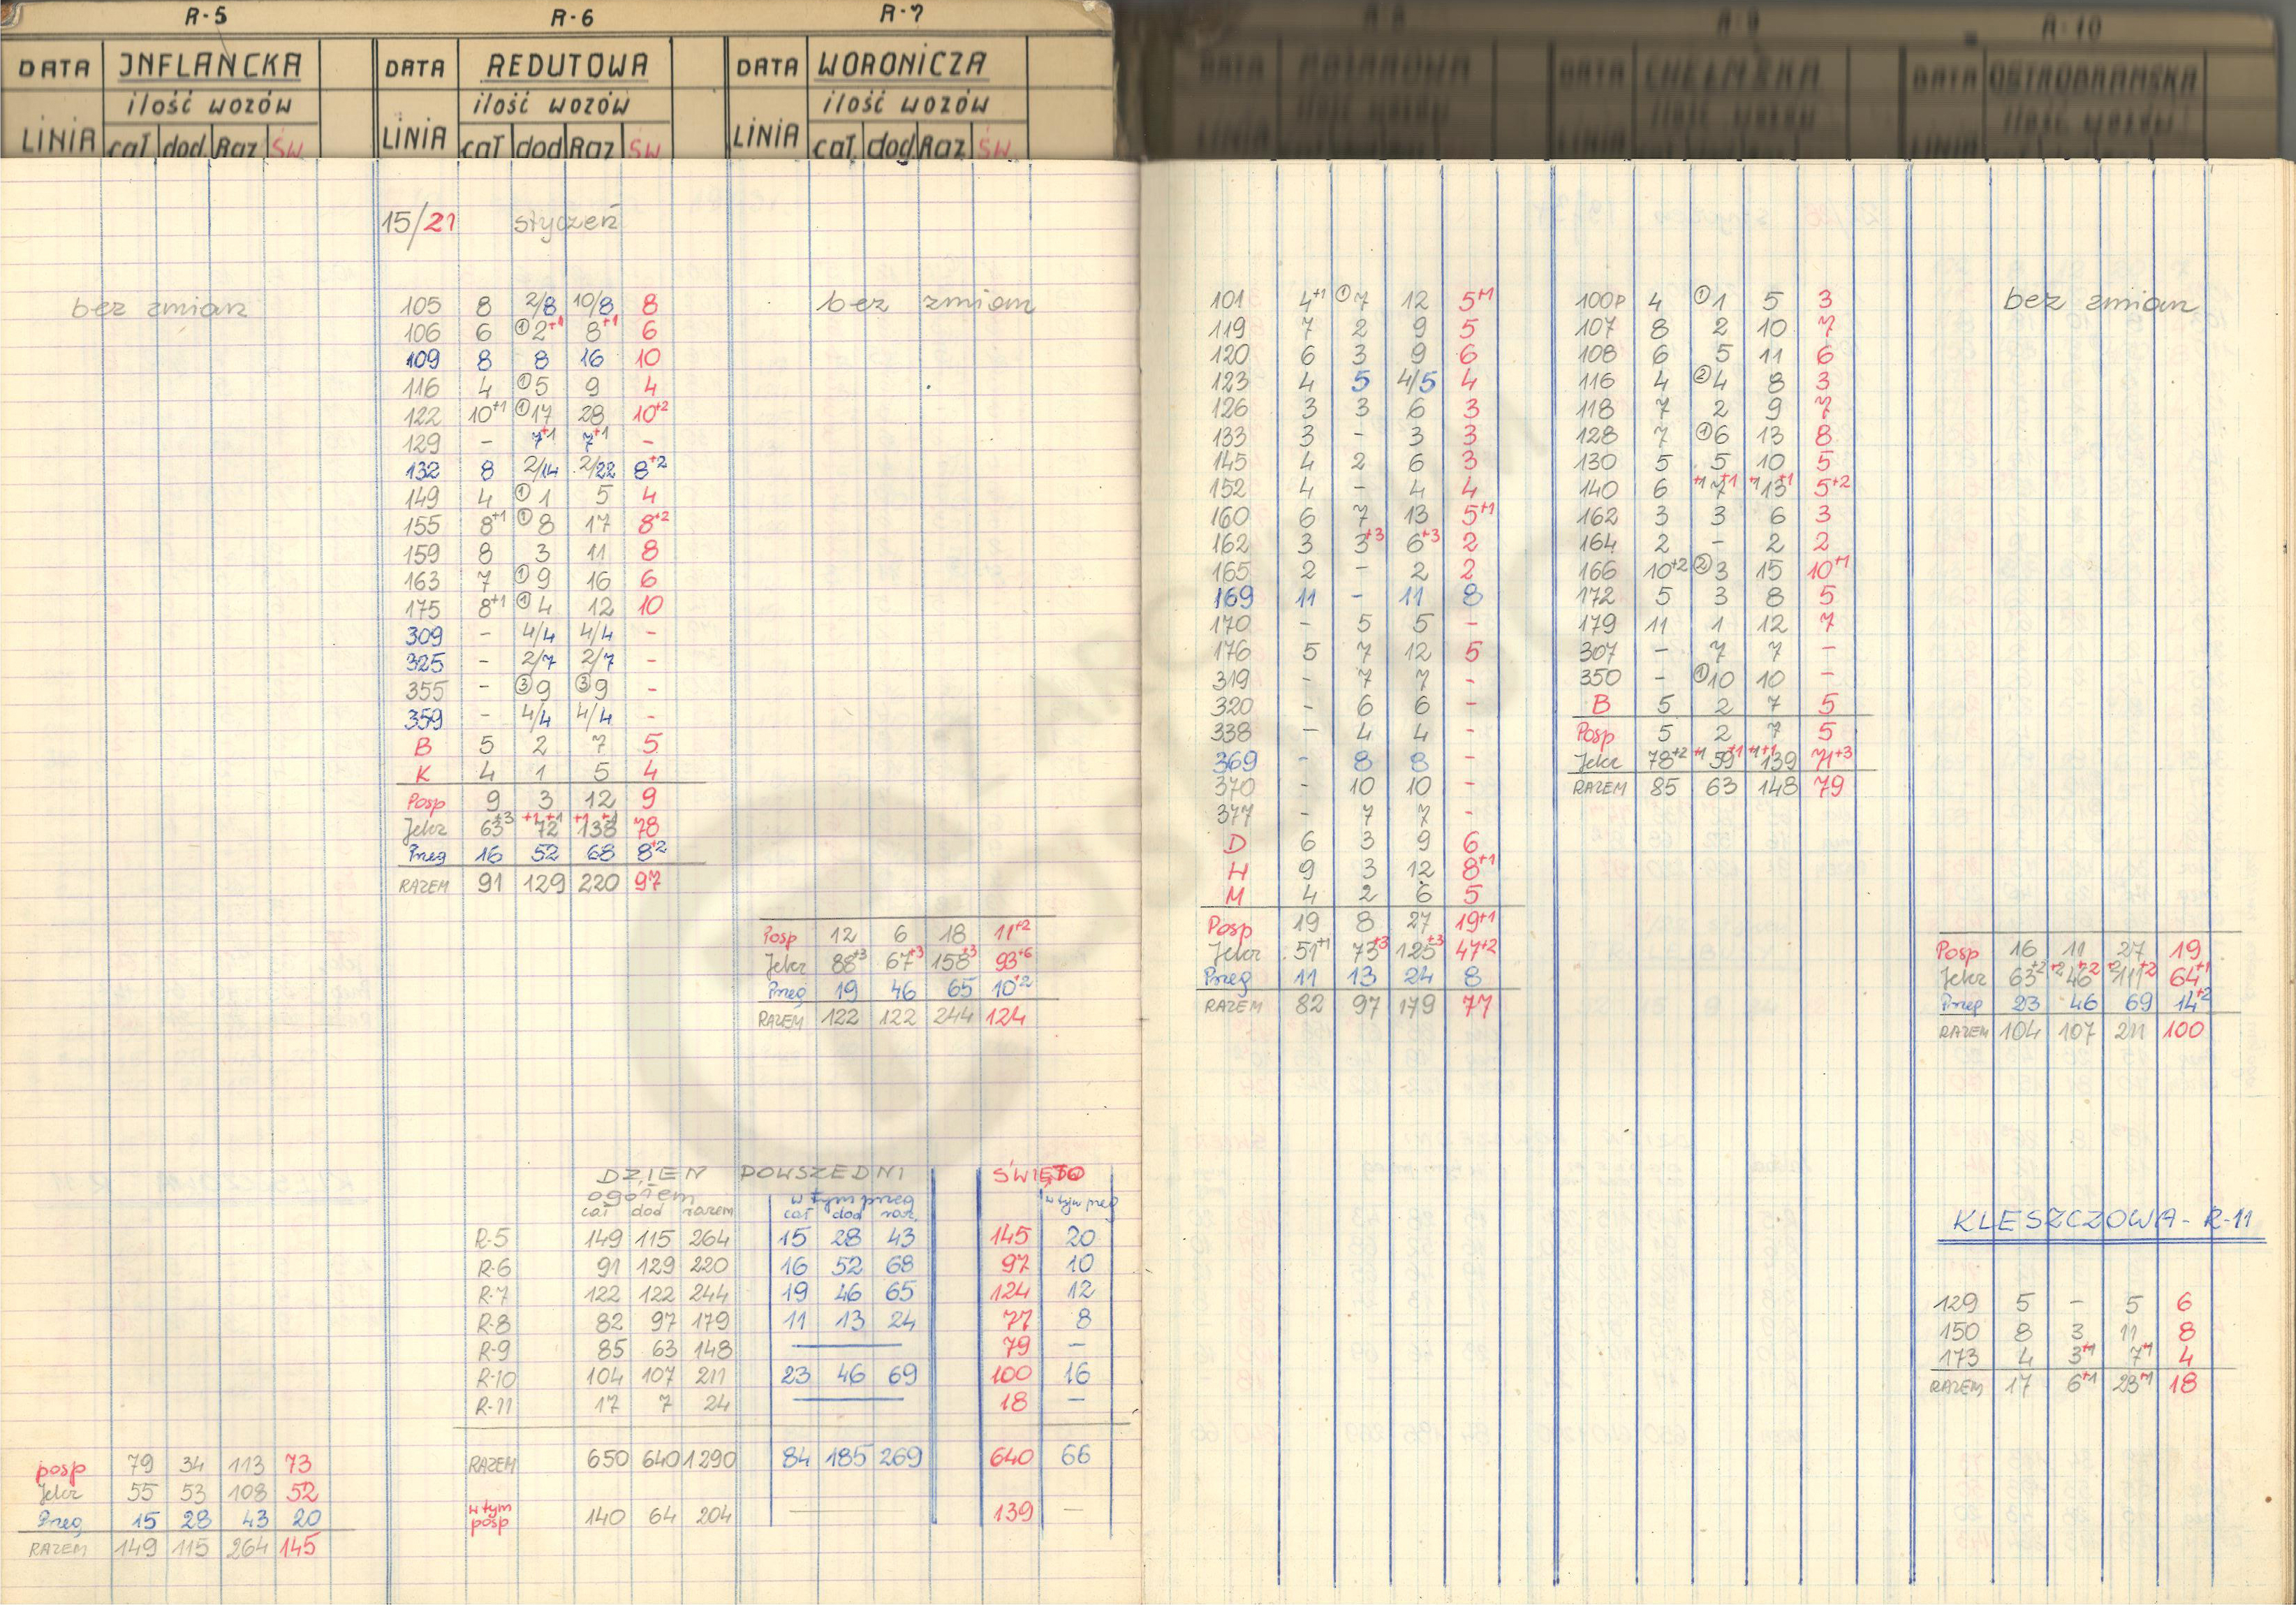 R-5
DATA INFLANCKA
ilość wozów
LINIA cał dod Raz ŚW
bez zmian
posp 79 34 113 73
Jelcz 55 53 108 52
Przeg 15 28 43 20
RAZEM 149 115 264 145
R-6
DATA REDUTOWA
ilość wozów
LINIA cał dod Raz ŚW
15/21 styczeń
105 8 2/8 10/8 8
106 6 ①2+1 8+1 6
109 8 8 16 10
116 4 ①5 9 4
122 10+1 ①17 28 10+2
129 - 7+1 7+1 -
132 8 2/14 2/22 8+2
149 4 ①1 5 4
155 8+1 ①8 17 8+2
159 8 3 11 8
163 7 ①9 16 6
175 8+1 ①4 12 10
309 - 4/4 4/4 -
325 - 2/7 2/7 -
355 - ③9 ③9 -
359 - 4/4 4/4 -
B 5 2 7 5
K 4 1 5 4
Posp 9 3 12 9
Jelcz 63+3 +1 72+1 +1 138+1 78
Przeg 16 52 68 8+2
RAZEM 91 129 220 97
R-7
DATA WORONICZA
ilość wozów
LINIA cał dod Raz ŚW
bez zmian
Posp 12 6 18 11+2
Jelcz 88+3 67+3 158+3 93+6
Przeg 19 46 65 10+2
RAZEM 122 122 244 124
DZIEŃ POWSZEDNI ŚWIĘTO
ogółem w tym przeg w tym przeg
cał dod razem cał dod raz.
R-5 149 115 264 15 28 43 145 20
R-6 91 129 220 16 52 68 97 10
R-7 122 122 244 19 46 65 124 12
R-8 82 97 179 11 13 24 77 8
R-9 85 63 148 — 79 —
R-10 104 107 211 23 46 69 100 16
R-11 17 7 24 — 18 —
RAZEM 650 640 1290 84 185 269 640 66
w tym posp 140 64 204 — 139 —
R-8
DATA
ilość wozów
LINIA
101 4+1 ①7 12 5+1
119 7 2 9 5
120 6 3 9 6
123 4 5 4/5 4
126 3 3 6 3
133 3 - 3 3
145 4 2 6 3
152 4 - 4 4
160 6 7 13 5+1
162 3 3+3 6+3 2
165 2 - 2 2
169 11 - 11 8
170 - 5 5 -
176 5 7 12 5
319 - 7 7 -
320 - 6 6 -
338 - 4 4 -
369 - 8 8 -
370 - 10 10 -
377 - 7 7 -
D 6 3 9 6
H 9 3 12 8+1
M 4 2 6 5
Posp 19 8 27 19+1
Jelcz 51+1 73+3 125+3 47+2
Przeg 11 13 24 8
RAZEM 82 97 179 77
R-9
DATA CHEŁMSKA
ilość wozów
LINIA
100P 4 ①1 5 3
107 8 2 10 7
108 6 5 11 6
116 4 ②4 8 3
118 7 2 9 7
128 7 ①6 13 8
130 5 5 10 5
140 6 +1 7+1 +1 13+1 5+2
162 3 3 6 3
164 2 - 2 2
166 10+2 ②3 15 10+1
172 5 3 8 5
179 11 1 12 7
307 - 7 7 -
350 - ①10 10 -
B 5 2 7 5
Posp 5 2 7 5
Jelcz 78+2 +1 59+1 +1+1 139 71+3
RAZEM 85 63 148 79
R-10
DATA OSTROBRAMSKA
ilość wozów
LINIA
bez zmian
Posp 16 11 27 19
Jelcz 63+2 +2 46+2 +2 111+2 64+1
Przeg 23 46 69 14+2
RAZEM 104 107 211 100
KLESZCZOWA - R-11
129 5 - 5 6
150 8 3 11 8
173 4 3+1 7+1 4
RAZEM 17 6+1 23+1 18